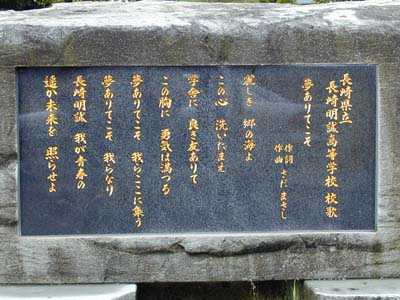 長崎県立
長崎明誠高等学校 校歌
夢ありてこそ
作詞
作曲 さだ まさし
麗しき 郷の海よ
この心 洗いたまえ
学舎に 良き友ありて
この胸に 勇気は満つる
夢ありてこそ 我らここに集う
夢ありてこそ 我らなり
長崎明誠 我が青春の
遥か未来を 照らせよ